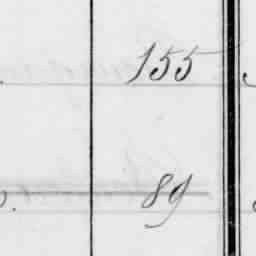 155
89